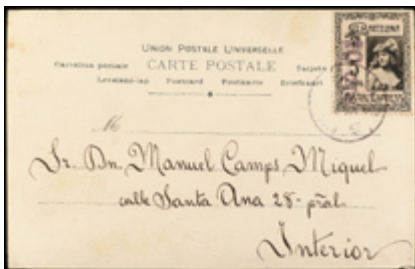 UNION POSTALE UNIVERSELLE
Cartolina postale CARTE POSTALE Tarjeta
Levelezo-lap Postcard Postkarte Briefkaart
M
Sr. Dn. Manuel Camps Miquel
calle Santa Ana 28-pral.
Interior